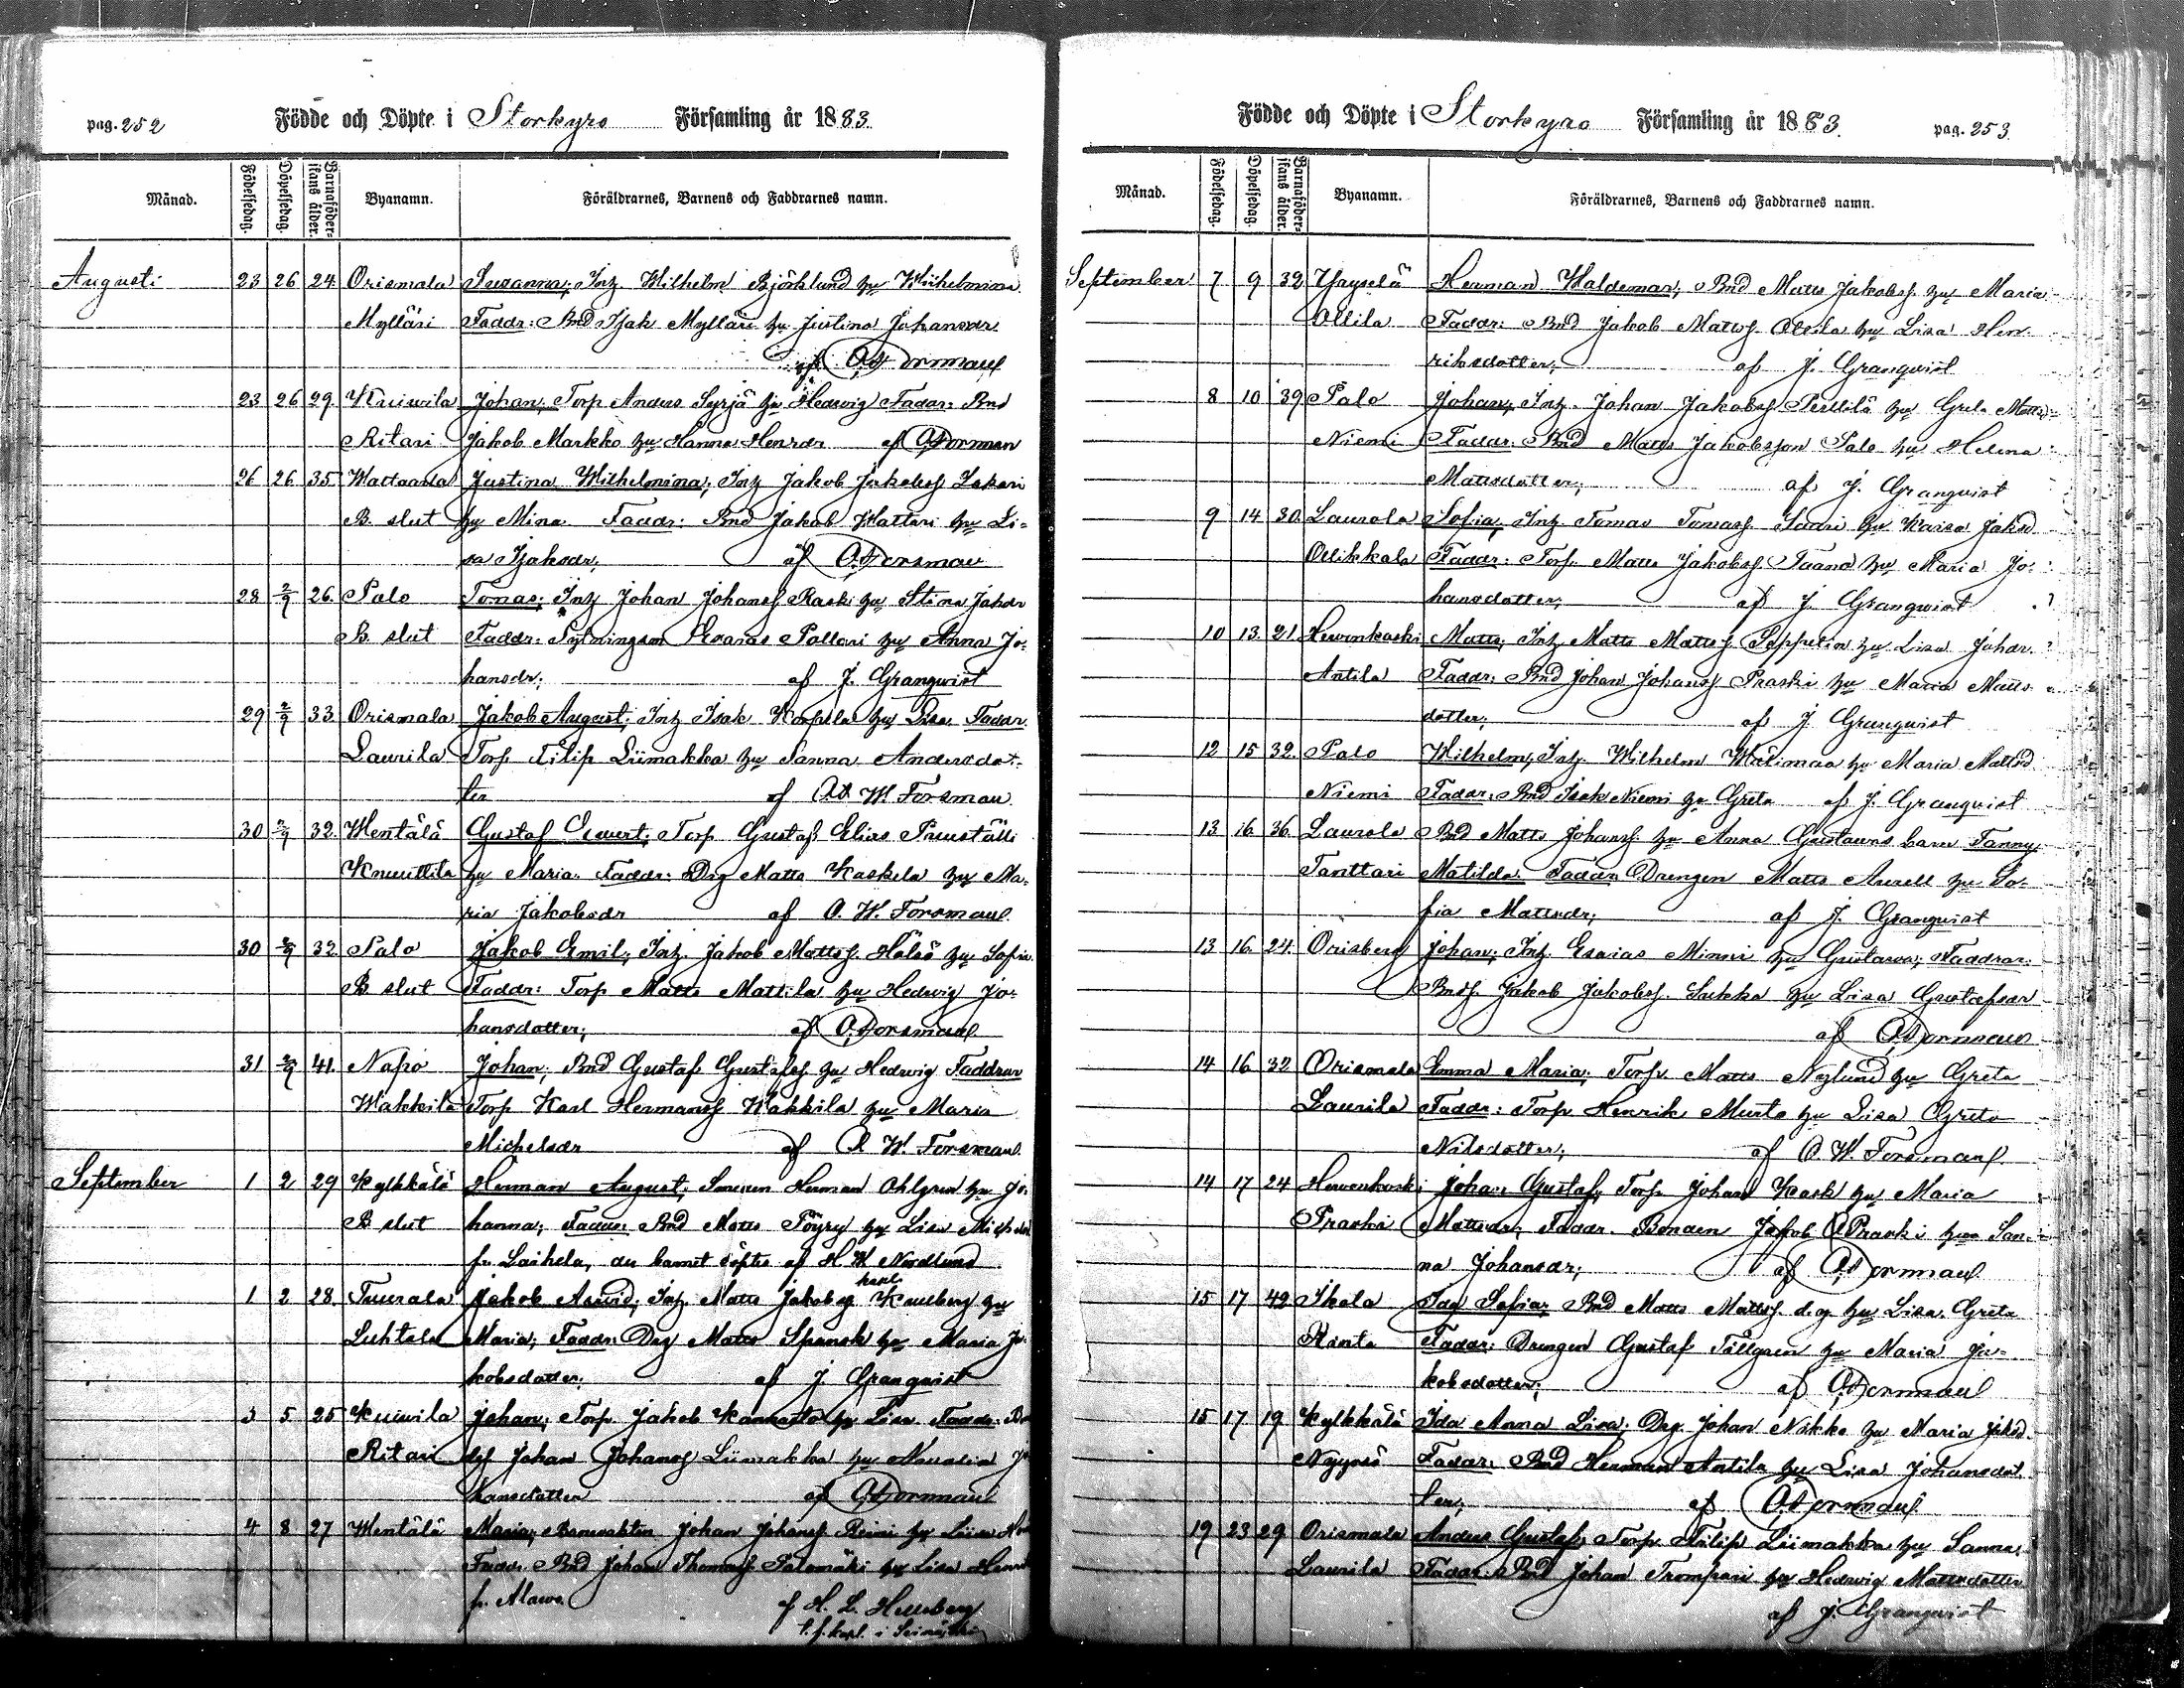 pag. 252
Födde och Döpte i Storkyro Församling år 1883.
Månad. Födelsedag. Döpelsedag. Barnaföderskans ålder. Byanamn. Föräldrarnes, Barnens och Faddrarnes namn.
Augusti 23 26 24. Orismala Susanna; Inh. Wilhelm Björklund hu Wilhelmina
Mylläri Faddr: Bnd Isak Mylläri hu Justina Johansdr
af O. W. Forsman
23 26 29. Kuiwila Johan; Torp Anders Syrjä hu Hedwig Faddr: Bnd
Ritari Jakob Markko hu Hanna Henrdr af O. W. Forsman
26 26 35. Wattaala Justina Wilhelmina; Inh Jakob Jakobss
B. slut hu Mina Faddr: Bnd Jakob Wattari hu Li=
sa Isaksdr, af O. W. Forsman
28 2/9 26. Palo Tomas; Inh Johan Johanss Rask hu Stina Johdr
B. slut Faddr: Sytningsm Esaias Pollari hu Anna Jo-
hansdr; af J. Granqvist
29 2/9 33. Orismala Jakob August; Inh Isak Korpela hu Lisa Faddr
Laurila Torp Filip Liimakka hu Sanna Andersdot-
ter af O. W. Forsman
30 2/9 32. Wentälä Gustaf Ewert; Torp Gustaf Elias
Knuuttila hu Maria. Faddr: Drg Matts Kaskela hu Ma-
ria Jakobsdr af O. W. Forsman
30 2/9 32 Palo Jakob Emil; Inh. Jakob Mattss. hu Sofia
B slut Faddr: Torp Matts Mattila hu Hedwig Jo-
hansdotter; af O. W. Forsman
31 2/9 41. Napo Johan; Bnd Gustaf Gustafss hu Hedwig Faddrar
Wakkila Torp Karl Hermanss Wakkila hu Maria
Michelsdr af O. W. Forsman
September 1 2 29 Kylkkälä Herman August; Smeden Herman Ohlgren hu Jo-
B slut hanna; Faddr: Bnd Matts Pöyry hu Lisa
fr. Laihela, der barnet döptes af H W Nordlund
kapl.
1 2 28. Tuurala Jakob Arwid; Inh. Matts Jakobss hu
Luhtala Maria; Faddr: Drg Matts Spansk hu Maria Ja-
kobsdotter; af J. Granqvist
3 5 25 Kuiwila Johan; Torp Jakob hu Lisa Faddr:
Ritari Johan Johanss Liimakka hu
hansdotter af O. W. Forsman
4 8 27 Wentälä Maria; Banvakten Johan Johanss Reini hu
Faddr. Bnd Johan Thomass Palomäki hu Lisa
fr. Alawo af H. L. Helleberg
t. f. kapl. i
pag. 253
Födde och Döpte i Storkyro Församling år 1883.
Månad. Födelsedag. Döpelsedag. Barnaföderskans ålder. Byanamn. Föräldrarnes, Barnens och Faddrarnes namn.
September 7 9 32 Herman Waldemar; Bnd Matts Jakobss. hu Maria
Ollila Faddr: Bnd Jakob Mattss Ollila hu Lisa Hen-
riksdotter; af J. Granqvist
8 10 39 Palo Johan; Inh. Johan Jakobss Perttilä hu Greta
Niemi Faddr: Bnd Matts Jakobsson Palo hu Helena
Mattsdotter; af J. Granqvist
9 14 30. Laurola Sofia; Inh Tomas Tomass Saari hu Kaisa Jaksd
Ollikkala Faddr: Torp. Matts Jakobss. hu Maria Jo-
hansdotter; af J. Granqvist
10 13. 21. Matts; Inh Matts Mattss. hu Lisa Johdr.
Antila Faddr: Bnd Johan Johanss Praski hu Maria Matts-
dotter; af J. Granqvist
12 15 32. Palo Wilhelm; Inh. Wilhelm Wälimaa hu Maria Mattsd
Niemi Faddr: Bnd Isak Niemi hu Greta af J. Granqvist
13 16. 36. Laurola Bnd Matts Johanss. hu Anna Gustavas barn Fanny
Tanttari Matilda Faddr: Drengen Matts hu So-
fia Mattsdr; af J. Granqvist
13 16. 24. Orisberg Johan; Inh. Esaias Minni hu Gustava; Faddrar:
Bnds. Jakob Jakobss. hu Lisa Gustafsdr
af O. W. Forsman
14 16 32 Orismala Emma Maria; Torp. Matts Nylund hu Greta
Laurila Faddr: Torp Henrik Murto hu Lisa Greta
Nilsdotter; af O. W. Forsman
14 17 24 Johan Gustaf; Torp Johan Kask hu Maria
Praski Mattsdr; Faddr. Bonden Jakob Praski hu San-
na Johansdr; af O. W. Forsman
15 17 42 Ikola Ida Sofia; Bnd Matts Mattss. d. y. hu Lisa Greta
Ranta Faddr: Drengen Gustaf Tällgren hu Maria Ja-
kobsdotter; af O. W. Forsman
15 17 19. Kylkkälä Ida Anna Lisa; Drg. Johan Nikko hu Maria Jaksd.
Nyyssö Faddr: Bnd Herman Antila hu Lisa Johansdot
ter; af O. W. Forsman
19 23 29. Orismala Anders Gustaf; Torp. Filip Liimakka hu Sanna;
Laurila Faddr: Bnd Johan Trompari hu Hedwig Mattsdotter
af J. Granqvist